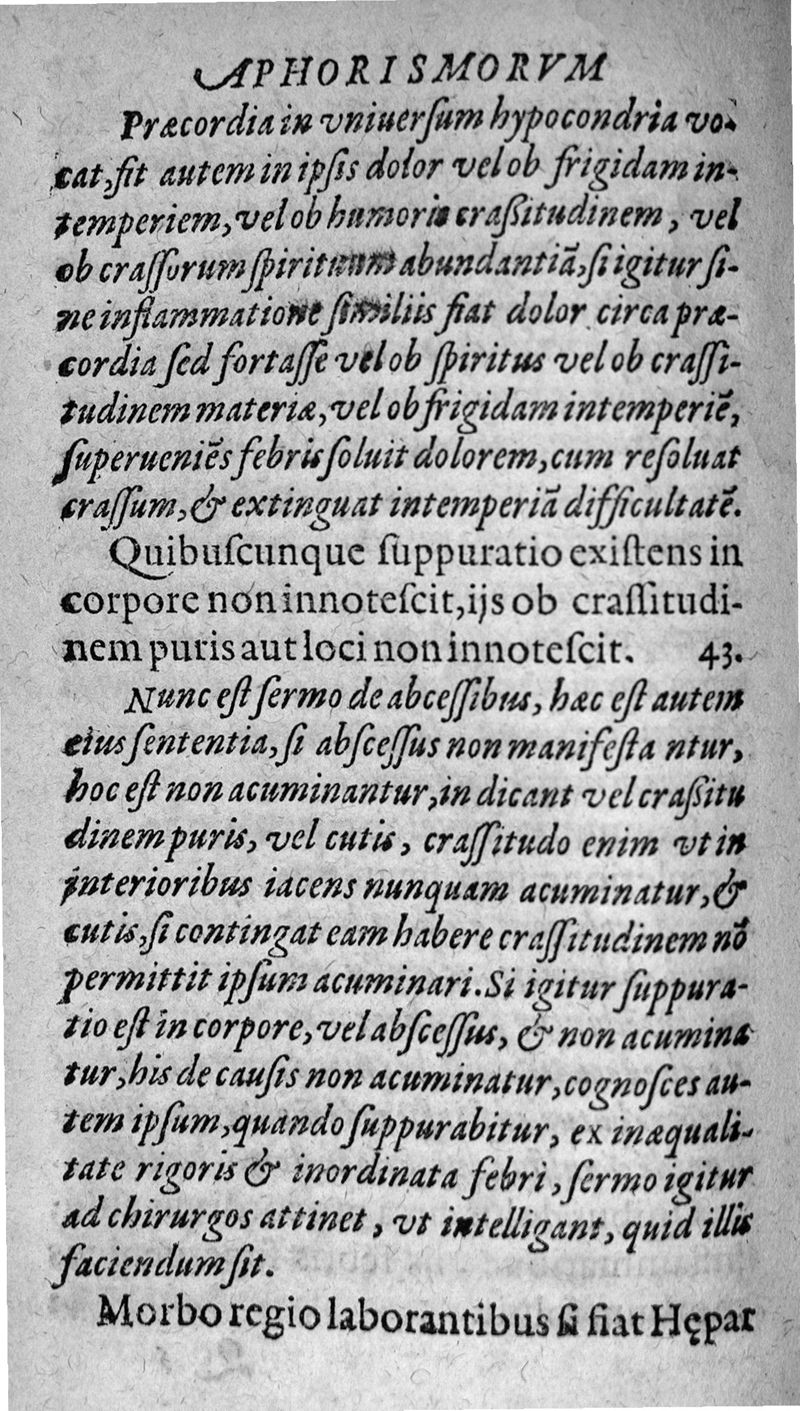 APHORISMORVM
Præcordia in vniuerſum hypocondria vo-
cat, fit autem in ipſis dolor vel ob frigidam in-
temperiem, vel ob humoris craſſitudinem, vel
ob craſſorum ſpirituum abundantiã, ſi igitur ſi-
ne inflammatione ſimiliis fiat dolor circa præ-
cordia ſed fortaſſe vel ob ſpiritus vel ob craſſi-
tudinem materiæ, vel ob frigidam intemperiẽ,
ſuperueniẽs febris ſoluit dolorem, cum reſoluat
craſſum, & extinguat intemperiã difficultatẽ.
Quibuſcunque ſuppuratio exiſtens in
corpore non innoteſcit, ijs ob craſſitudi-
nem puris aut loci non innoteſcit. 43.
Nunc eſt ſermo de abceſſibus, hæc eſt autem
eius ſententia, ſi abſceſſus non manifeſta ntur,
hoc eſt non acuminantur, in dicant vel craſſitu
dinem puris, vel cutis, craſſitudo enim vt in
interioribus iacens nunquam acuminatur, &
cutis, ſi contingat eam habere craſſitudinem nõ
permittit ipſum acuminari. Si igitur ſuppura-
tio eſt in corpore, vel abſceſſus, & non acumina
tur, his de cauſis non acuminatur, cognoſces au-
tem ipſum, quando ſuppurabitur, ex inæquali-
tate rigoris & inordinata febri, ſermo igitur
ad chirurgos attinet, vt intelligant, quid illis
faciendum ſit.
Morbo regio laborantibus ſi fiat Hępar